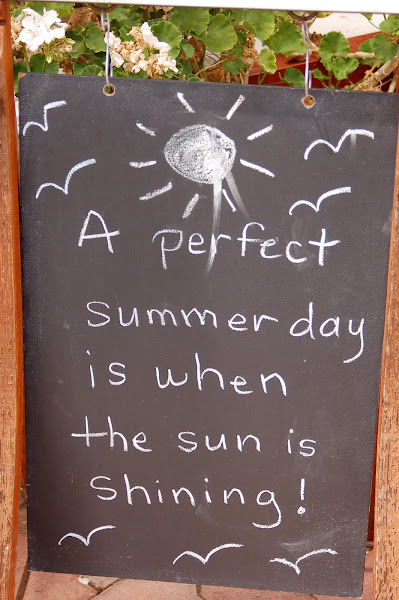 A perfect
summer day
is when
the sun is
shining!